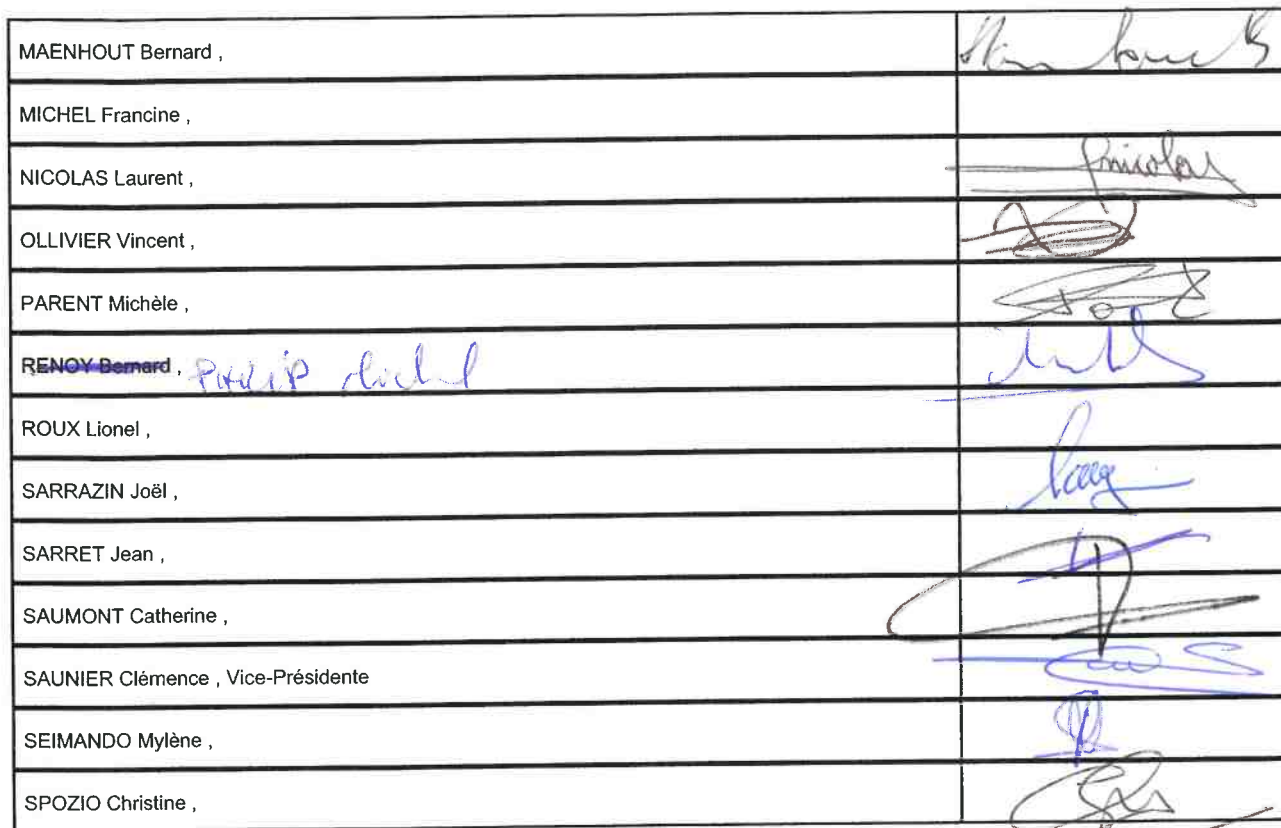 MAENHOUT Bernard ,
MICHEL Francine ,
NICOLAS Laurent ,
OLLIVIER Vincent ,
PARENT Michèle ,
RENOY Bernard , PHILIP Michel
ROUX Lionel ,
SARRAZIN Joël ,
SARRET Jean ,
SAUMONT Catherine ,
SAUNIER Clémence , Vice-Présidente
SEIMANDO Mylène ,
SPOZIO Christine ,